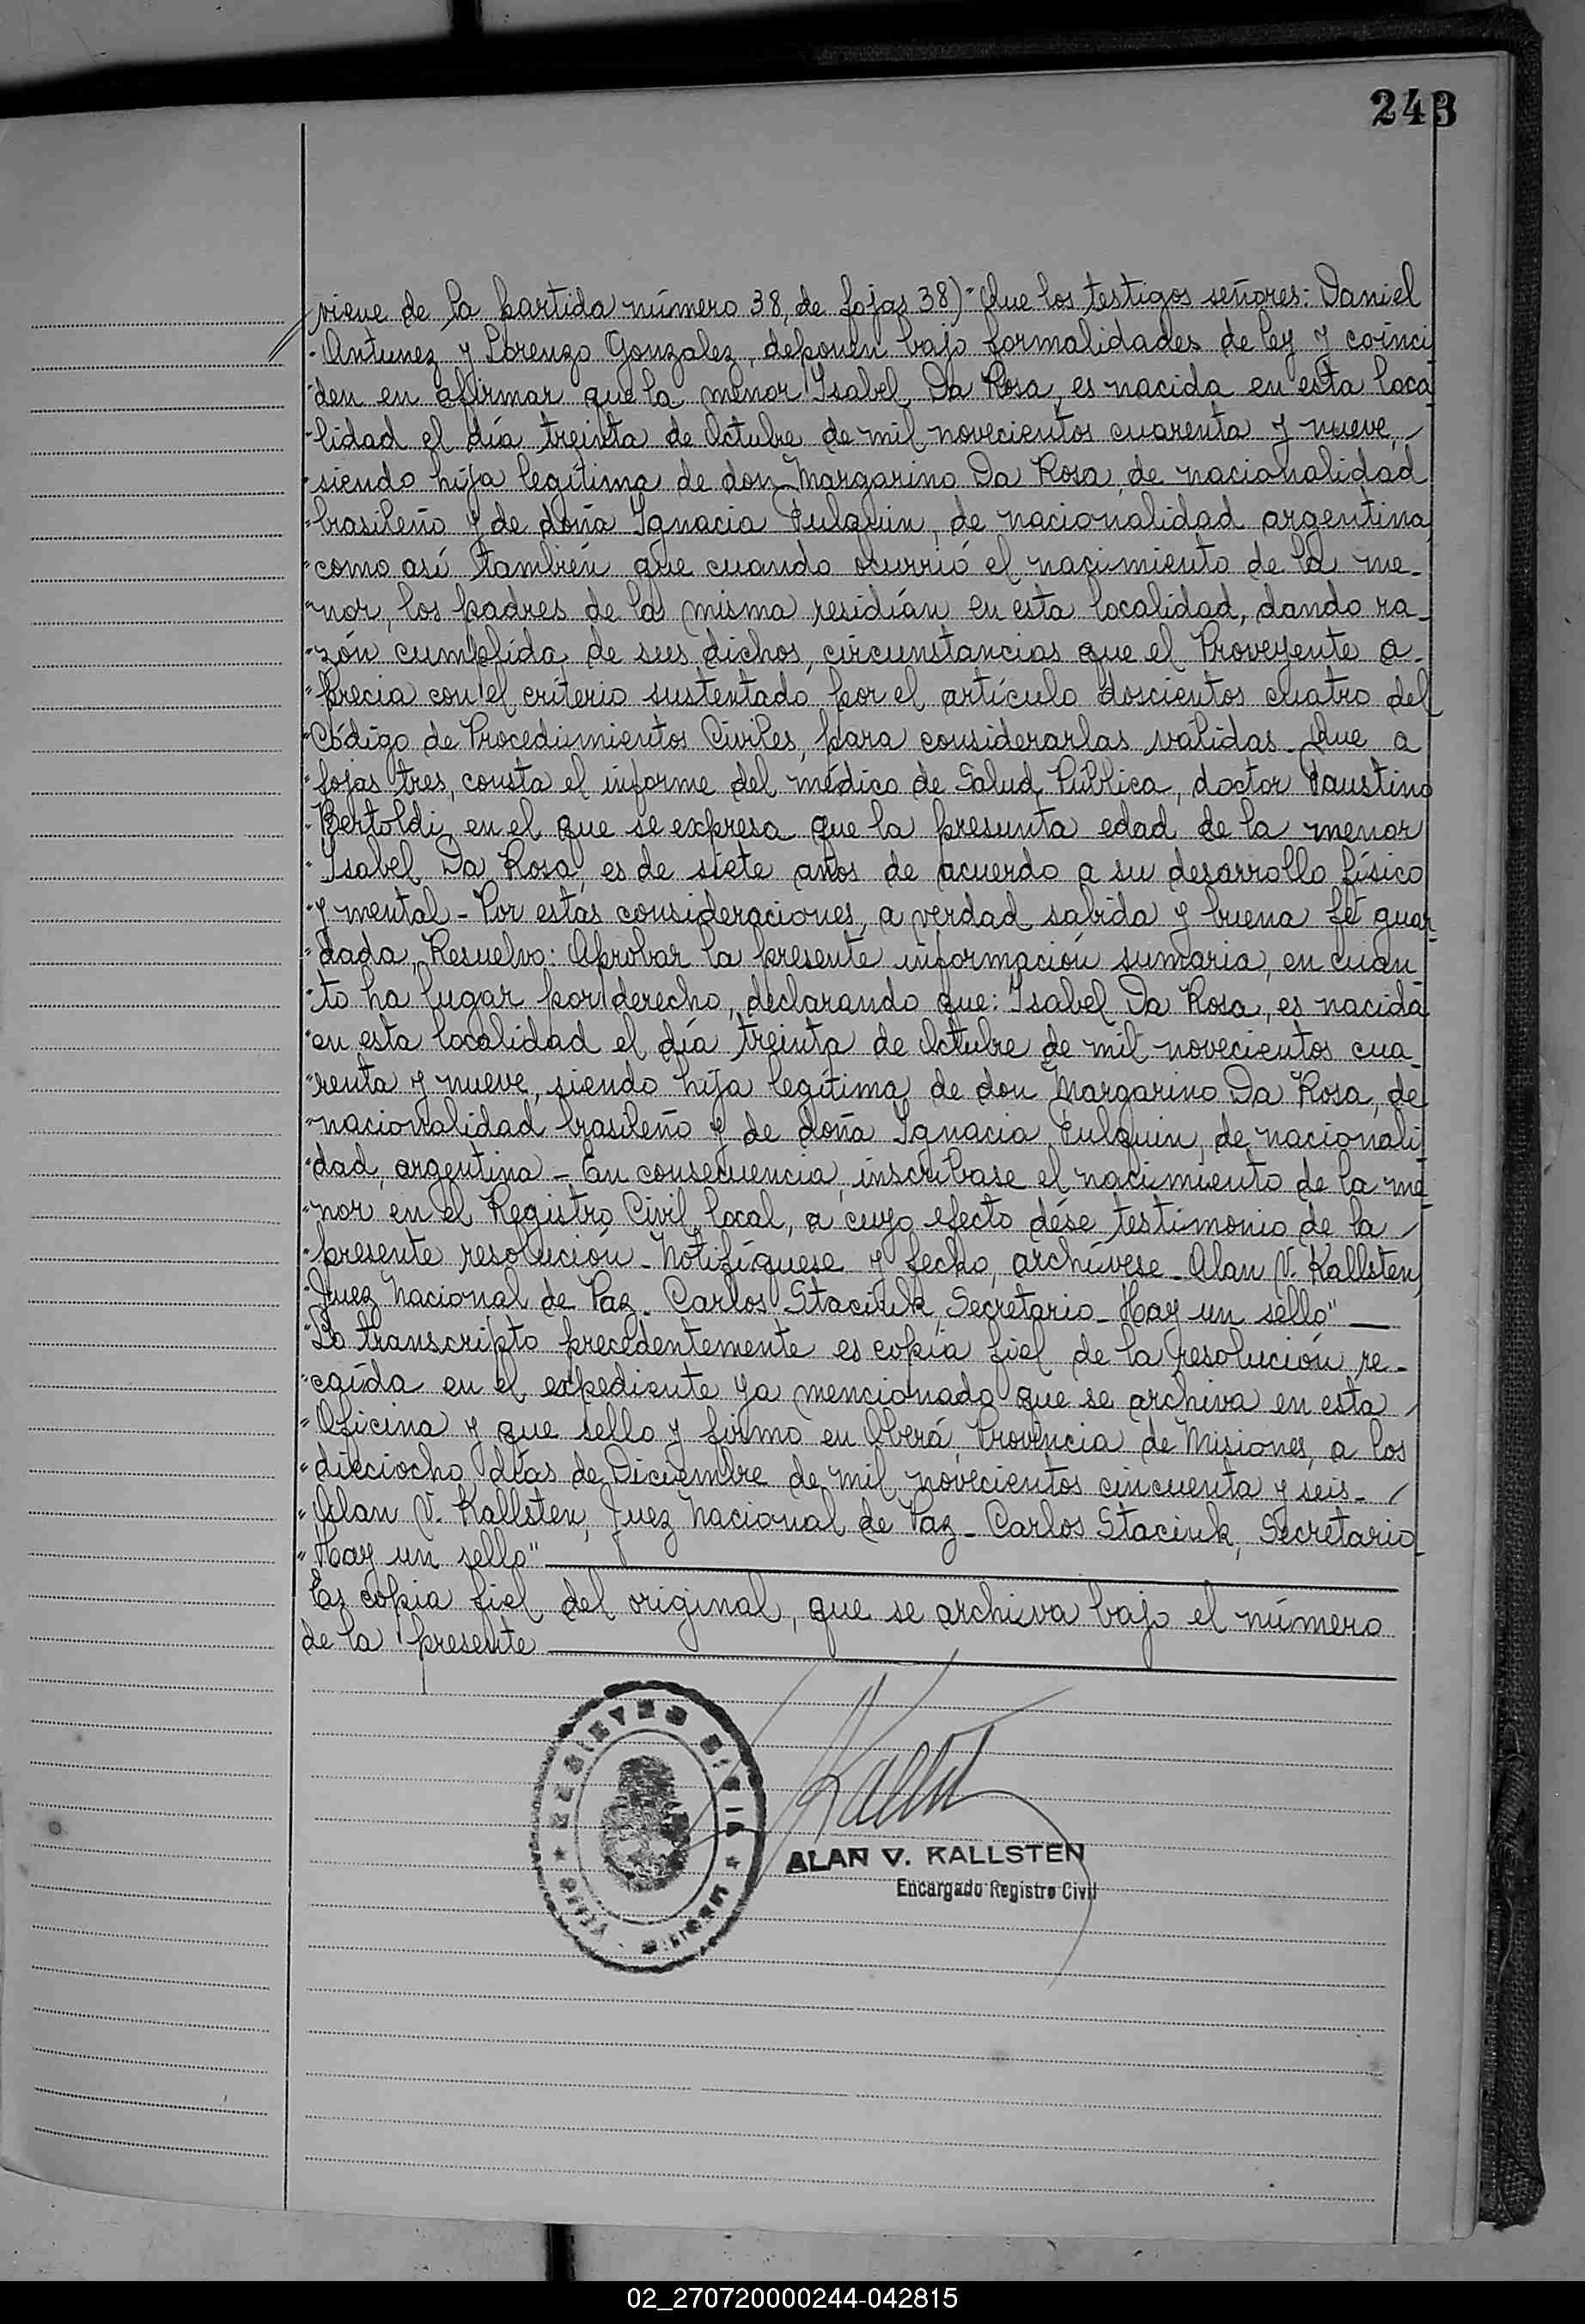 243
viene de la partida número 38, de fojas 38)- Que los testigos señores: Daniel
"Antunez y Lorenzo Gonzalez, deponen bajo formalidades de ley y coinci
"den en afirmar que la menor Isabel Da Rosa, es nacida en esta loca
"lidad el día treinta de Octubre de mil novecientos cuarenta y nueve,
"siendo hija legítima de don Margarino Da Rosa, de nacionalidad
"brasileño y de doña Ignacia Fulquin, de nacionalidad argentina,
"como así también que cuando ocurrió el nacimiento de la me-
"nor, los padres de la misma residían en esta localidad, dando ra-
"zón cumplida de sus dichos, circunstancias que el Proveyente a-
"precia con el criterio sustentado por el artículo doscientos cuatro del
"Código de Procedimientos Civiles, para considerarlas válidas- Que a
"fojas tres, consta el informe del médico de Salud Pública, doctor Faustino
"Bertoldi, en el que se expresa que la presunta edad de la menor
"Isabel Da Rosa, es de siete años de acuerdo a su desarrollo físico
"y mental- Por estas consideraciones, a verdad sabida y buena fé guar-
"dada, Resuelvo: Aprobar la presente información sumaria, en cuan
"to ha lugar por derecho, declarando que: Isabel Da Rosa, es nacida
"en esta localidad el día treinta de Octubre de mil novecientos cua-
"renta y nueve, siendo hija legítima de don Margarino Da Rosa, de
"nacionalidad brasileño y de doña Ignacia Fulquin, de nacionali
"dad, argentina- En consecuencia, inscríbase el nacimiento de la me
"nor en el Registro Civil local, a cuyo efecto dése testimonio de la
"presente resolución- Notifíquese y fecho, archívese- Alan V. Kallsten,
"Juez Nacional de Paz- Carlos Staciuk, Secretario- Hay un sello"
"Lo transcripto precedentemente es copia fiel de la resolución re-
"caída en el expediente ya mencionado que se archiva en esta
"Oficina y que sello y firmo en Oberá, Provincia de Misiones, a los
"dieciocho días de Diciembre de mil novecientos cincuenta y seis-
"Alan V. Kallsten, Juez Nacional de Paz- Carlos Staciuk, Secretario-
"Hay un sello"
Es copia fiel del original, que se archiva bajo el número
de la presente
REGISTRO CIVIL
ALAN V. KALLSTEN
Encargado Registro Civil
02_270720000244-042815